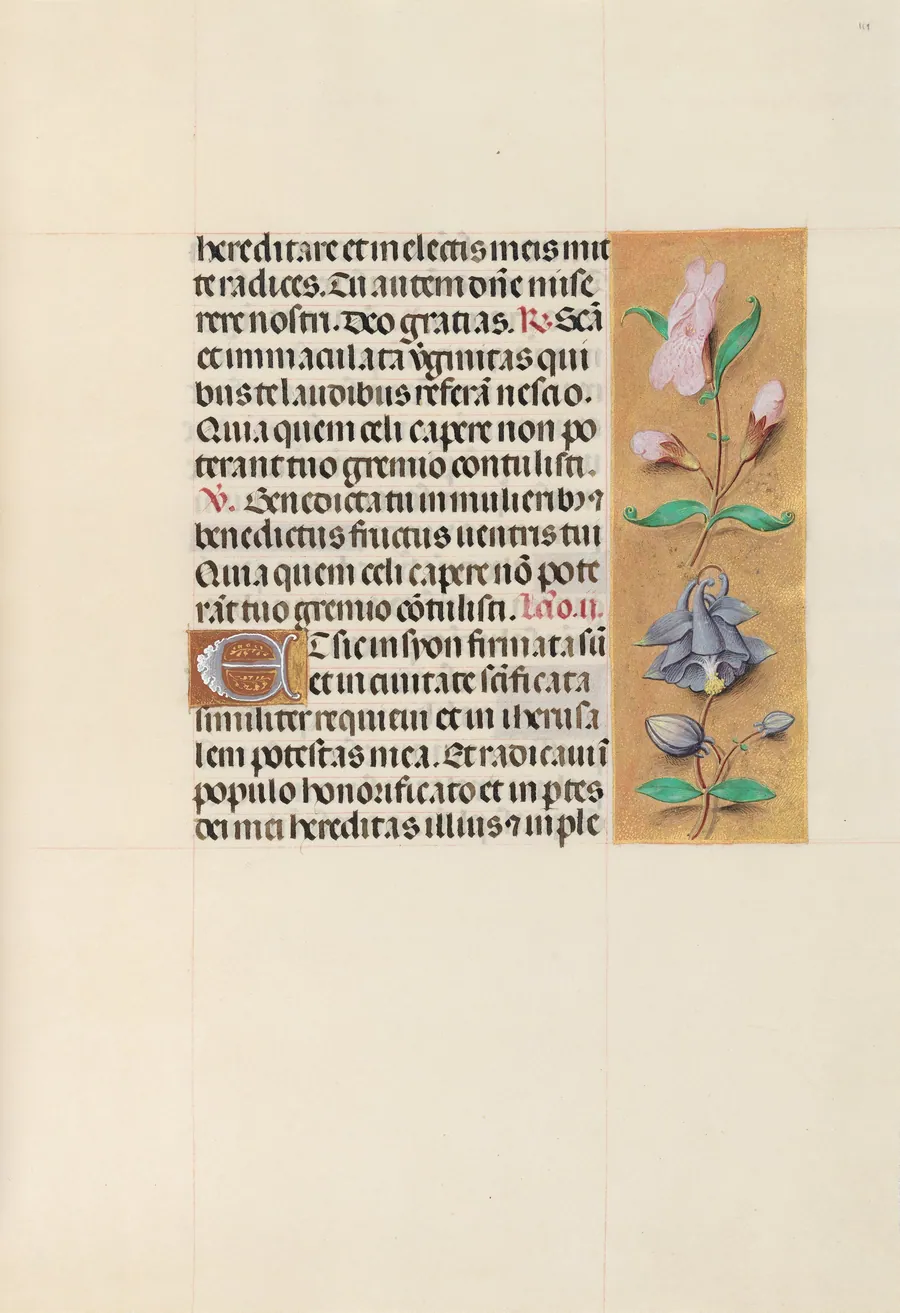 hereditare et in electis meis mit
te radices. Tu autem dñe mise
rere nostri. Deo gratias. R. Scã
et immaculata v̄ginitas qui
bus te laudibus referã nescio.
Quia quem celi capere non po
terant tuo gremio contulisti.
V. Benedicta tu in mulieribꝫ ⁊
benedictus fructus uentris tui
Quia quem celi capere nõ pote
rãt tuo gremio cõtulisti. Lcõ.ii.
ET sic in syon firmata sũ
et in ciuitate sc̃ificata
similiter requieui et in iherusa
lem potestas mea. Et radicaui ĩ
populo honorificato et in ꝑtes
dei mei hereditas illius ⁊ in ple